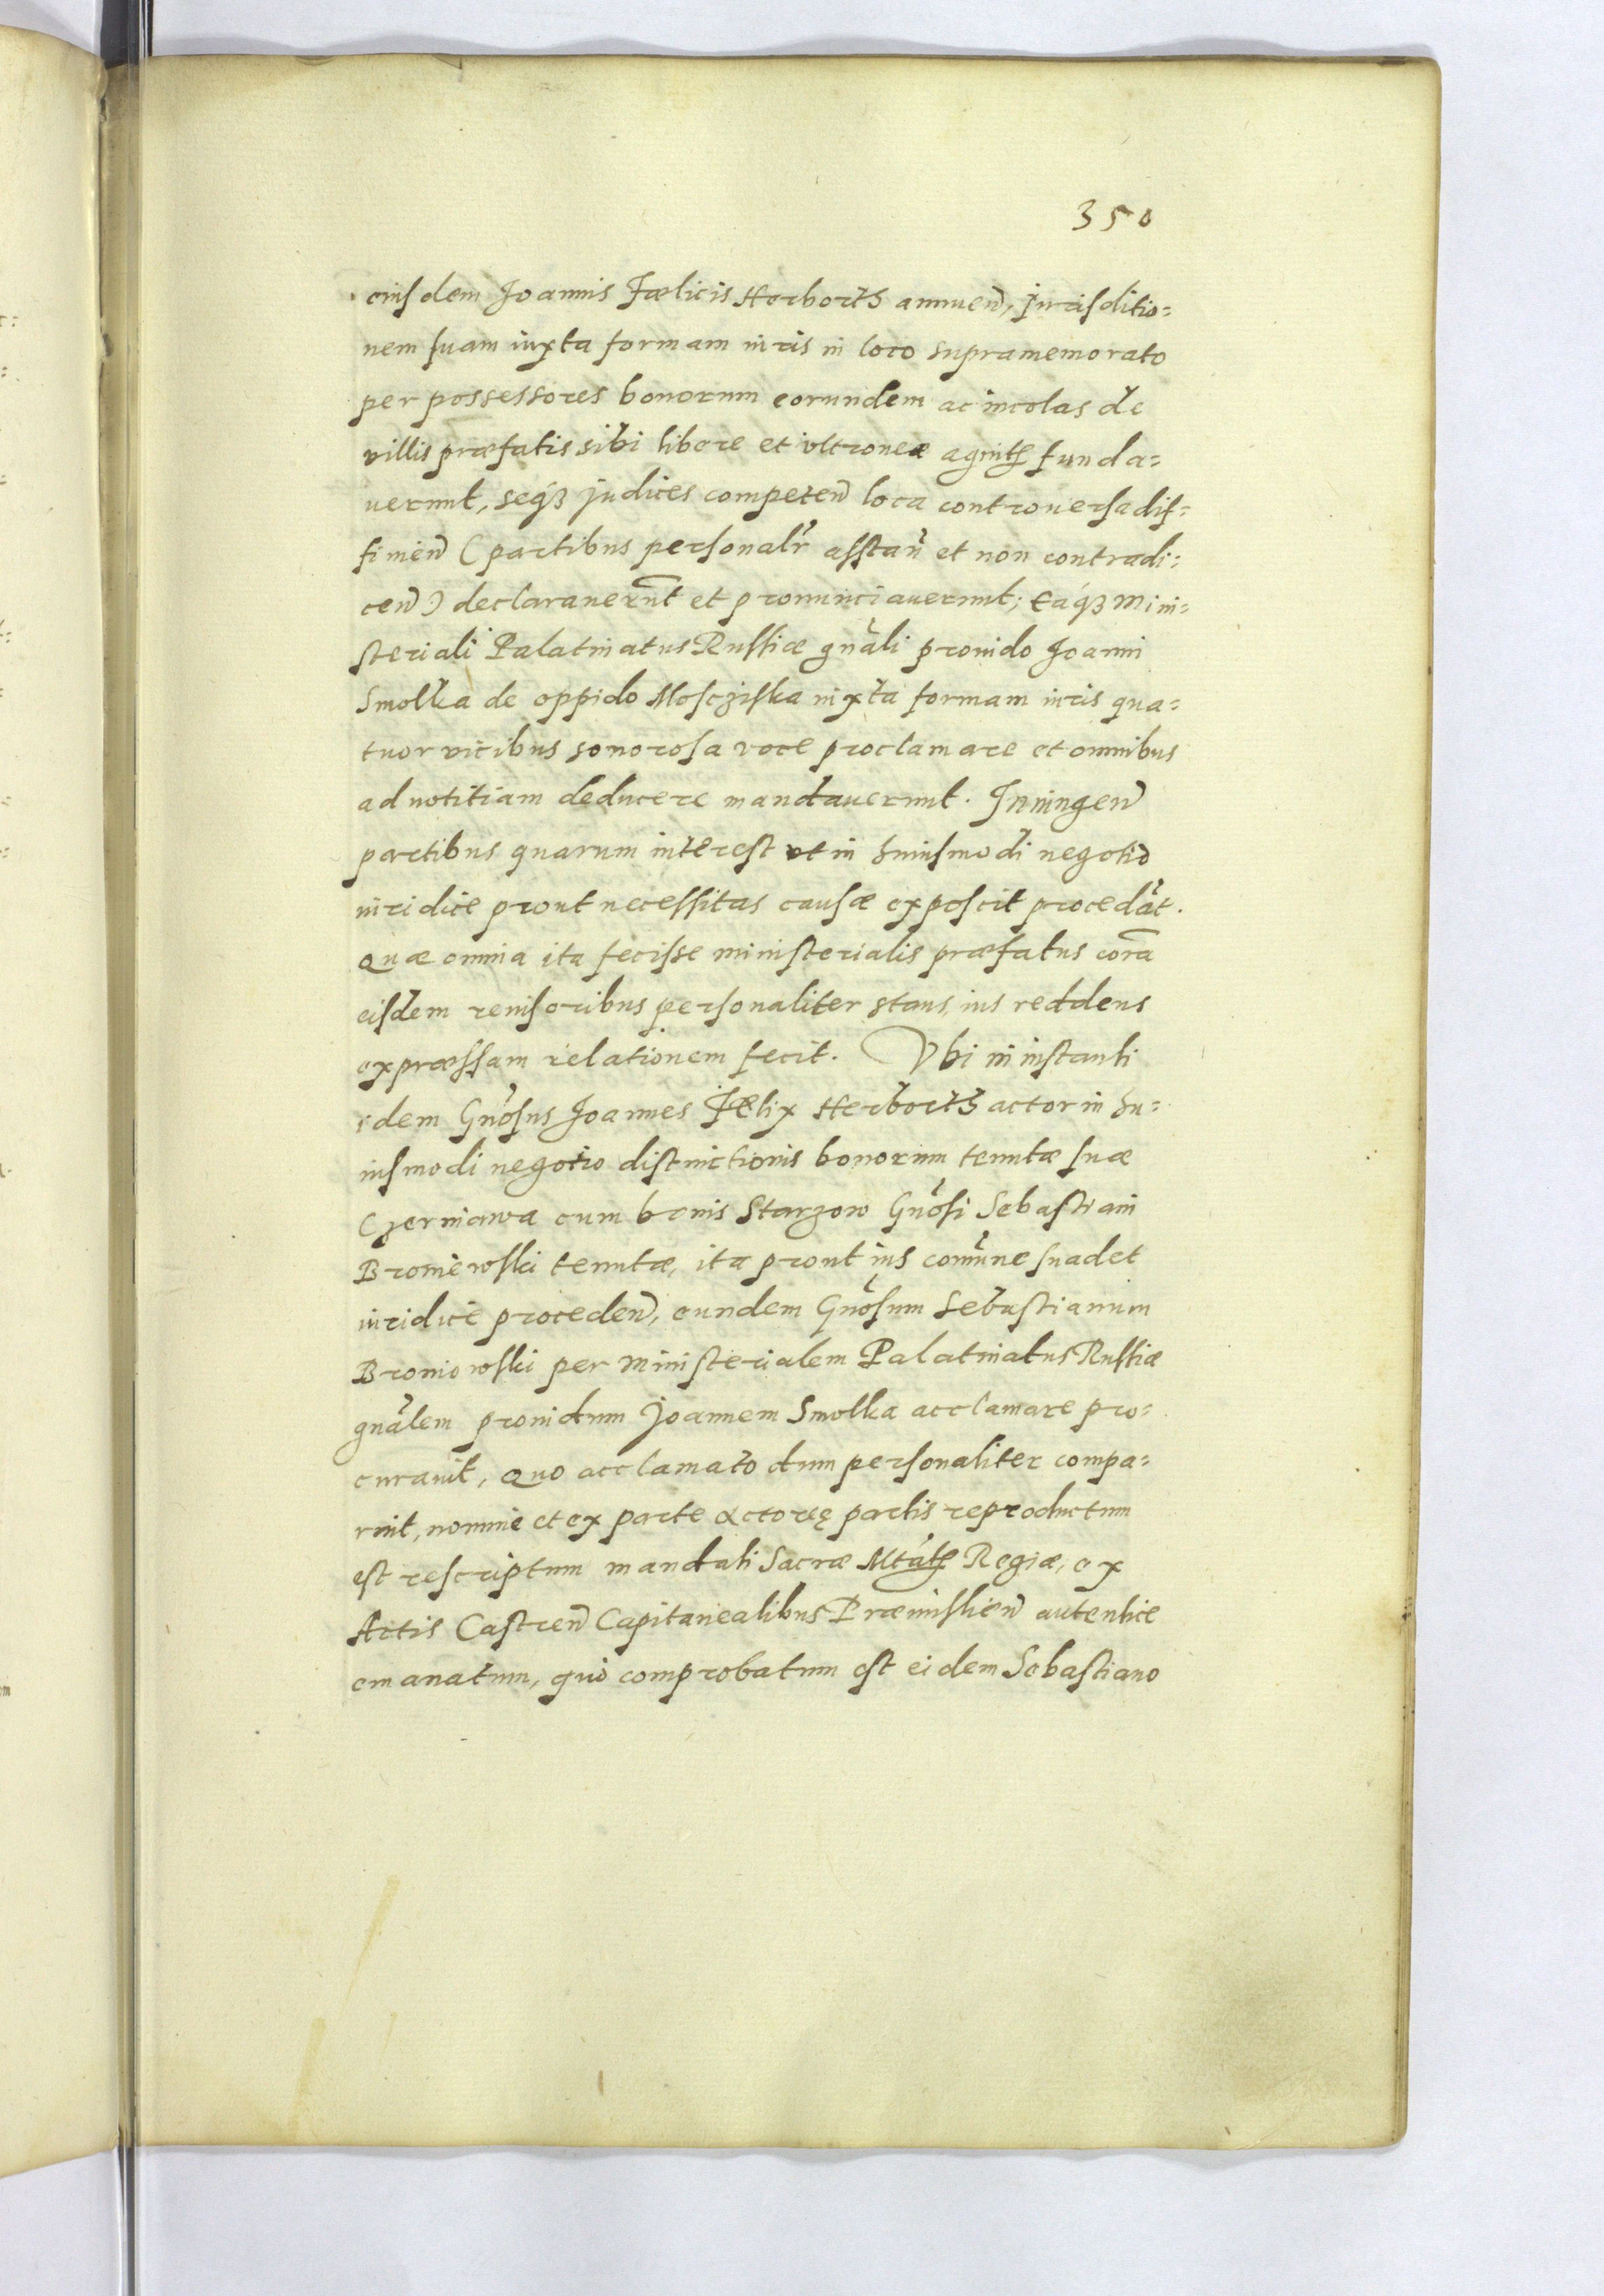 350
eiusdem Joannis Fælicis Herborth annuen̄, jurisditio=
nem suam iuxta formam iuris in loco supramemorato
per possessores bonorum eorundem ac incolas de
villis præfatis sibi libere et ultroneæ agnit funda=
uerunt, seq́ʒ judices competen̄ loca controuersa dif=
finien̄ (partibus personalr̄ asstan̄ et non contradi=
cen̄) declarauerūnt et pronunciauerunt; Eaq́ʒ Mini=
steriali Palatinatus Russiæ gn̄ali prouido Joanni
Smolka de oppido Mosczyska iuxta formam iuris qua=
tuor vicibus sonorosa voce proclamare et omnibus
ad notitiam deducere mandauerunt. Iniungen̄
partibus quarum interest ut in huiusmodi negotio
iuridice prout necessitas causæ exposcit procedāt.
Quæ omnia ita fecisse ministerialis præfatus corā
eisdem reuisoribus personaliter stans, ius reddens
expræssam relationem fecit. Vbi in instanti
idem Gn̄osus Joannes Fælix Herborth actor in hu=
iusmodi negotio distinctionis bonorum tenutæ suæ
Czerniawa cum bonis Starzow Gn̄osi Sebastiani
Broniewski tenutæ, ita prout ius com̄une suadet
iuridice proceden̄, eundem Gn̄osum Sebastianum
Broniowski per ministerialem Palatinatus Russiæ
gn̄alem prouidum Joannem Smolka acclamare pro=
curauit, Quo acclamato dum personaliter compa=
ruit, nomine et ex parte actoreę partis reproductum
est rescriptum mandati Sacræ Mtāt Regiæ, ex
Actis Castren̄ Capitanealibus Præmislien̄ autentice
emanatum, quo comprobatum est eidem Sebastiano